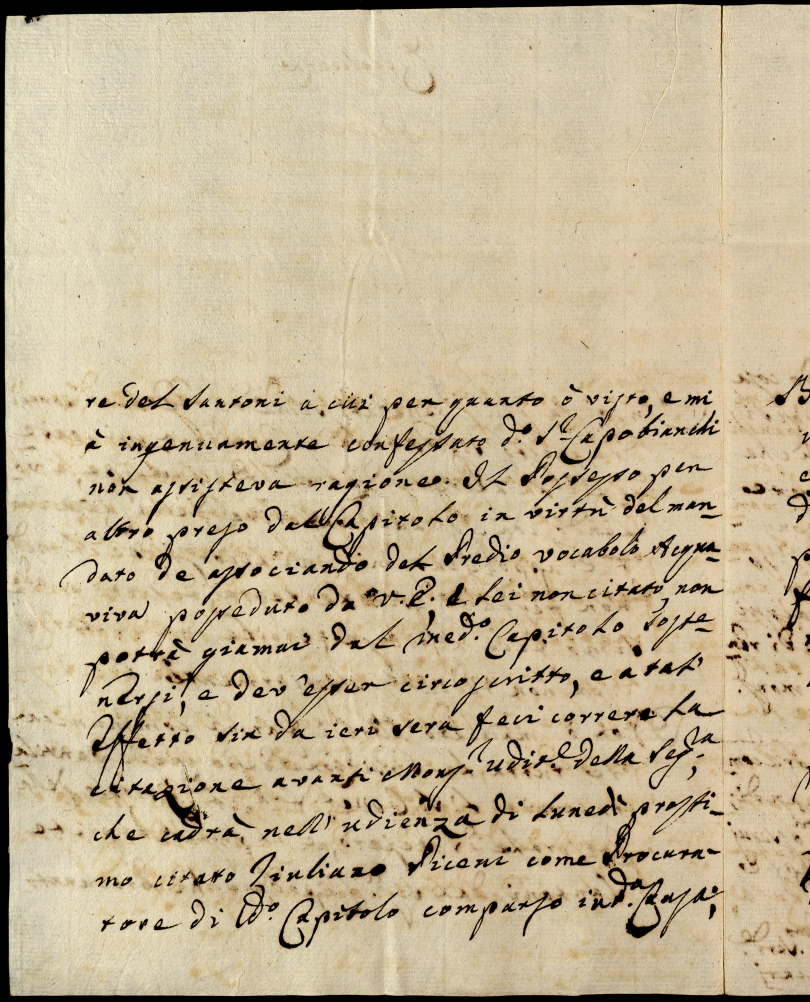 re del Santoni à cui per quanto ò visto, e mi
à ingenuamente confessato d.º S.r Capobianchi
non assisteva ragione. Il Possesso per
altro preso dal Capitolo in virtù del man-
dato de associando del Predio vocabolo Acqua-
viva posseduto da V. P. e Lei non citato, non
potrà giamai dal med.º Capitolo soste-
nersi, e dev'esser circoscritto, e à tal'
effetto sin da ieri sera feci correre la
citazione avanti Mons.r Udit.e della Seg.ra
che cadrà nell'udienza di Lunedì prossi-
mo citato Giuliano Piceni come Procura-
tore di d.º Capitolo comparso in d.a Causa;